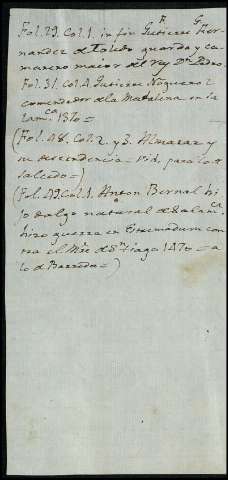 Fol. 29. Col. 1. in fin Gutierre Her-
nandez de Toledo guarda y ca-
marero maior del rey Dn. Pedro.
Fol. 31. Col. 4. Gutierre Noguerol
comendador de la Madalena en
Sam.ca 1370=
(Fol. 48. Col. 2. y 3. Almaraz y
su descendencia= Vid. para
Salcedo=)
(Fol. 49. Col. 1. Anton Bernal hi
jo dalgo natural de Salam.ca
hizo guerra en Extremadura con
tra el Mre. de Sntiago 1470=a
lo de Barrada=)